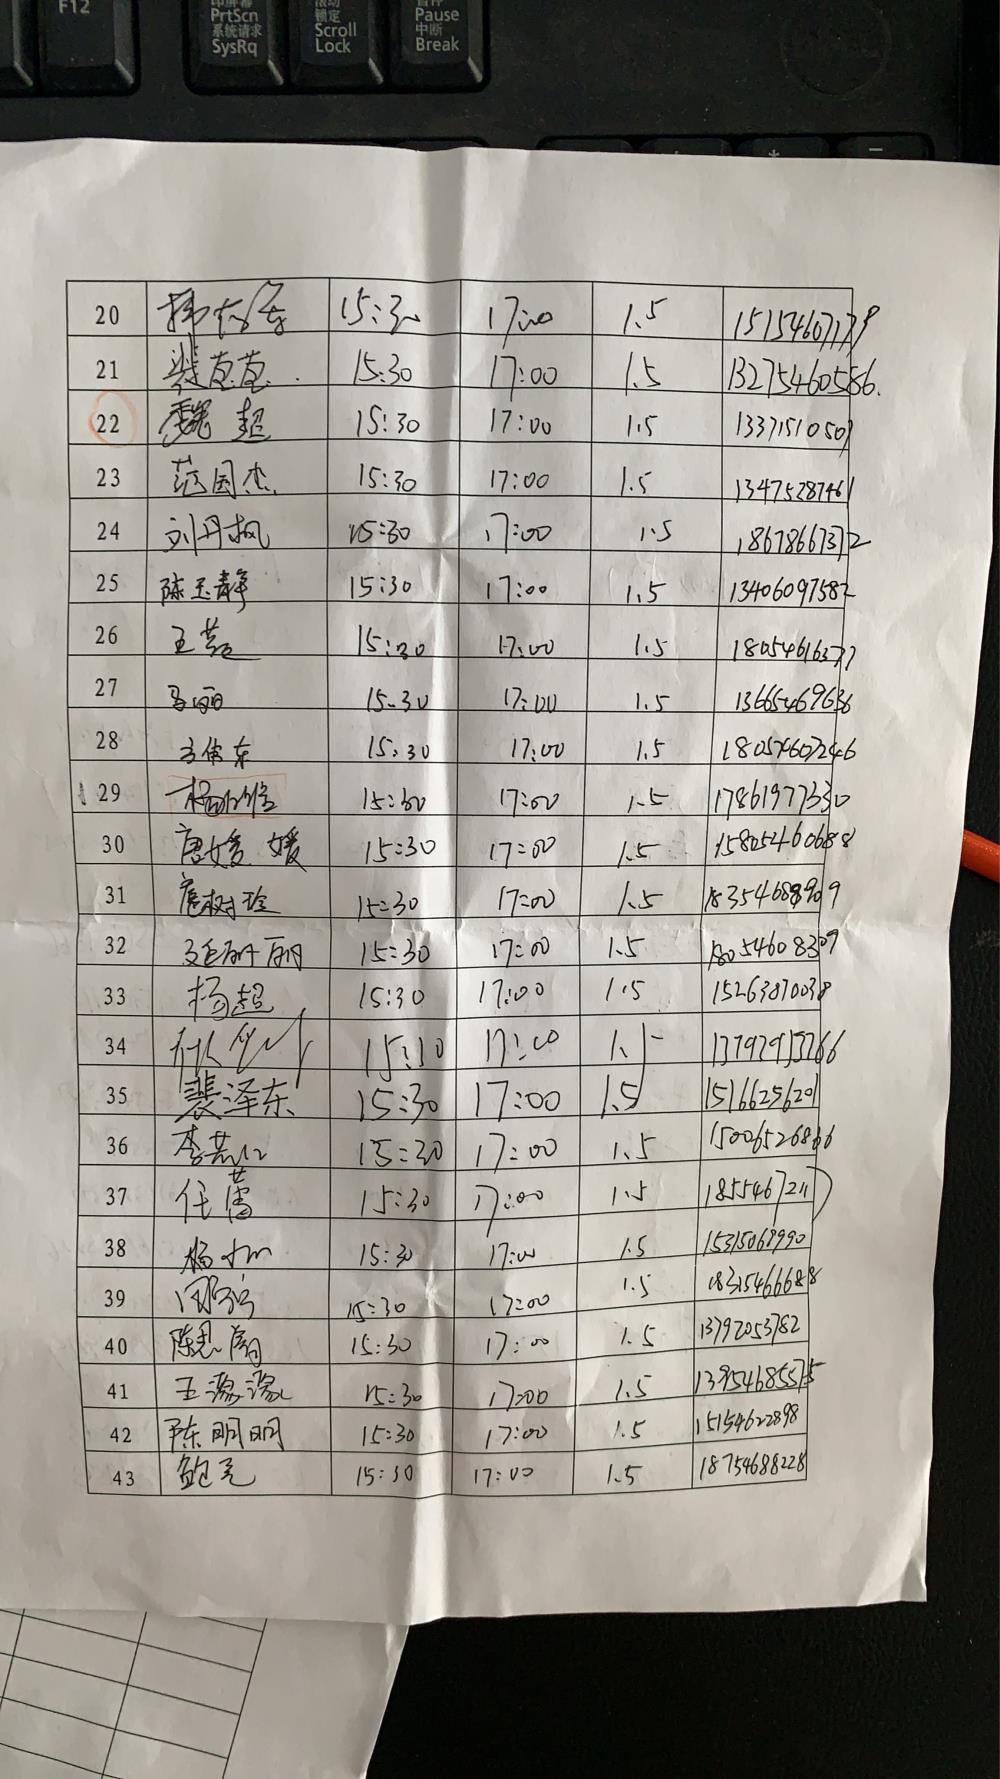 F12
PrtScn
系统请求
SysRq
Scroll
锁定
Lock
Pause
中断
Break
20 15:30 17:00 1.5 15154607179
21 15:30 17:00 1.5 13275460586.
22 魏超 15:30 17:00 1.5 13371510501
23 范国杰 15:30 17:00 1.5 13475287461
24 刘丹枫 15:30 17:00 1.5 18678667372
25 陈玉静 15:30 17:00 1.5 13406097582
26 15:30 17:00 1.5 18054616377
27 马丽 15:30 17:00 1.5 13665469636
28 方伟东 15:30 17:00 1.5 18054607246
29 15:30 17:00 1.5 17861977330
30 唐媛媛 15:30 17:00 1.5 15805460688
31 15:30 17:00 1.5
32 15:30 17:00 1.5 18054608309
33 杨超 15:30 17:00 1.5 15263870038
34 15:30 17:00 1.5 13792915266
35 裴泽东 15:30 17:00 1.5 15166256201
36 15:30 17:00 1.5 15006526866
37 任蕾 15:30 17:00 1.5 18554672117
38 杨 15:30 17:00 1.5 15315068990
39 15:30 17:00 1.5 18315466688
40 陈 15:30 17:00 1.5 13792053782
41 王濛濛 15:30 17:00 1.5 13954685575
42 陈明明 15:30 17:00 1.5 15154622898
43 鲍亮 15:30 17:00 1.5 18754688228